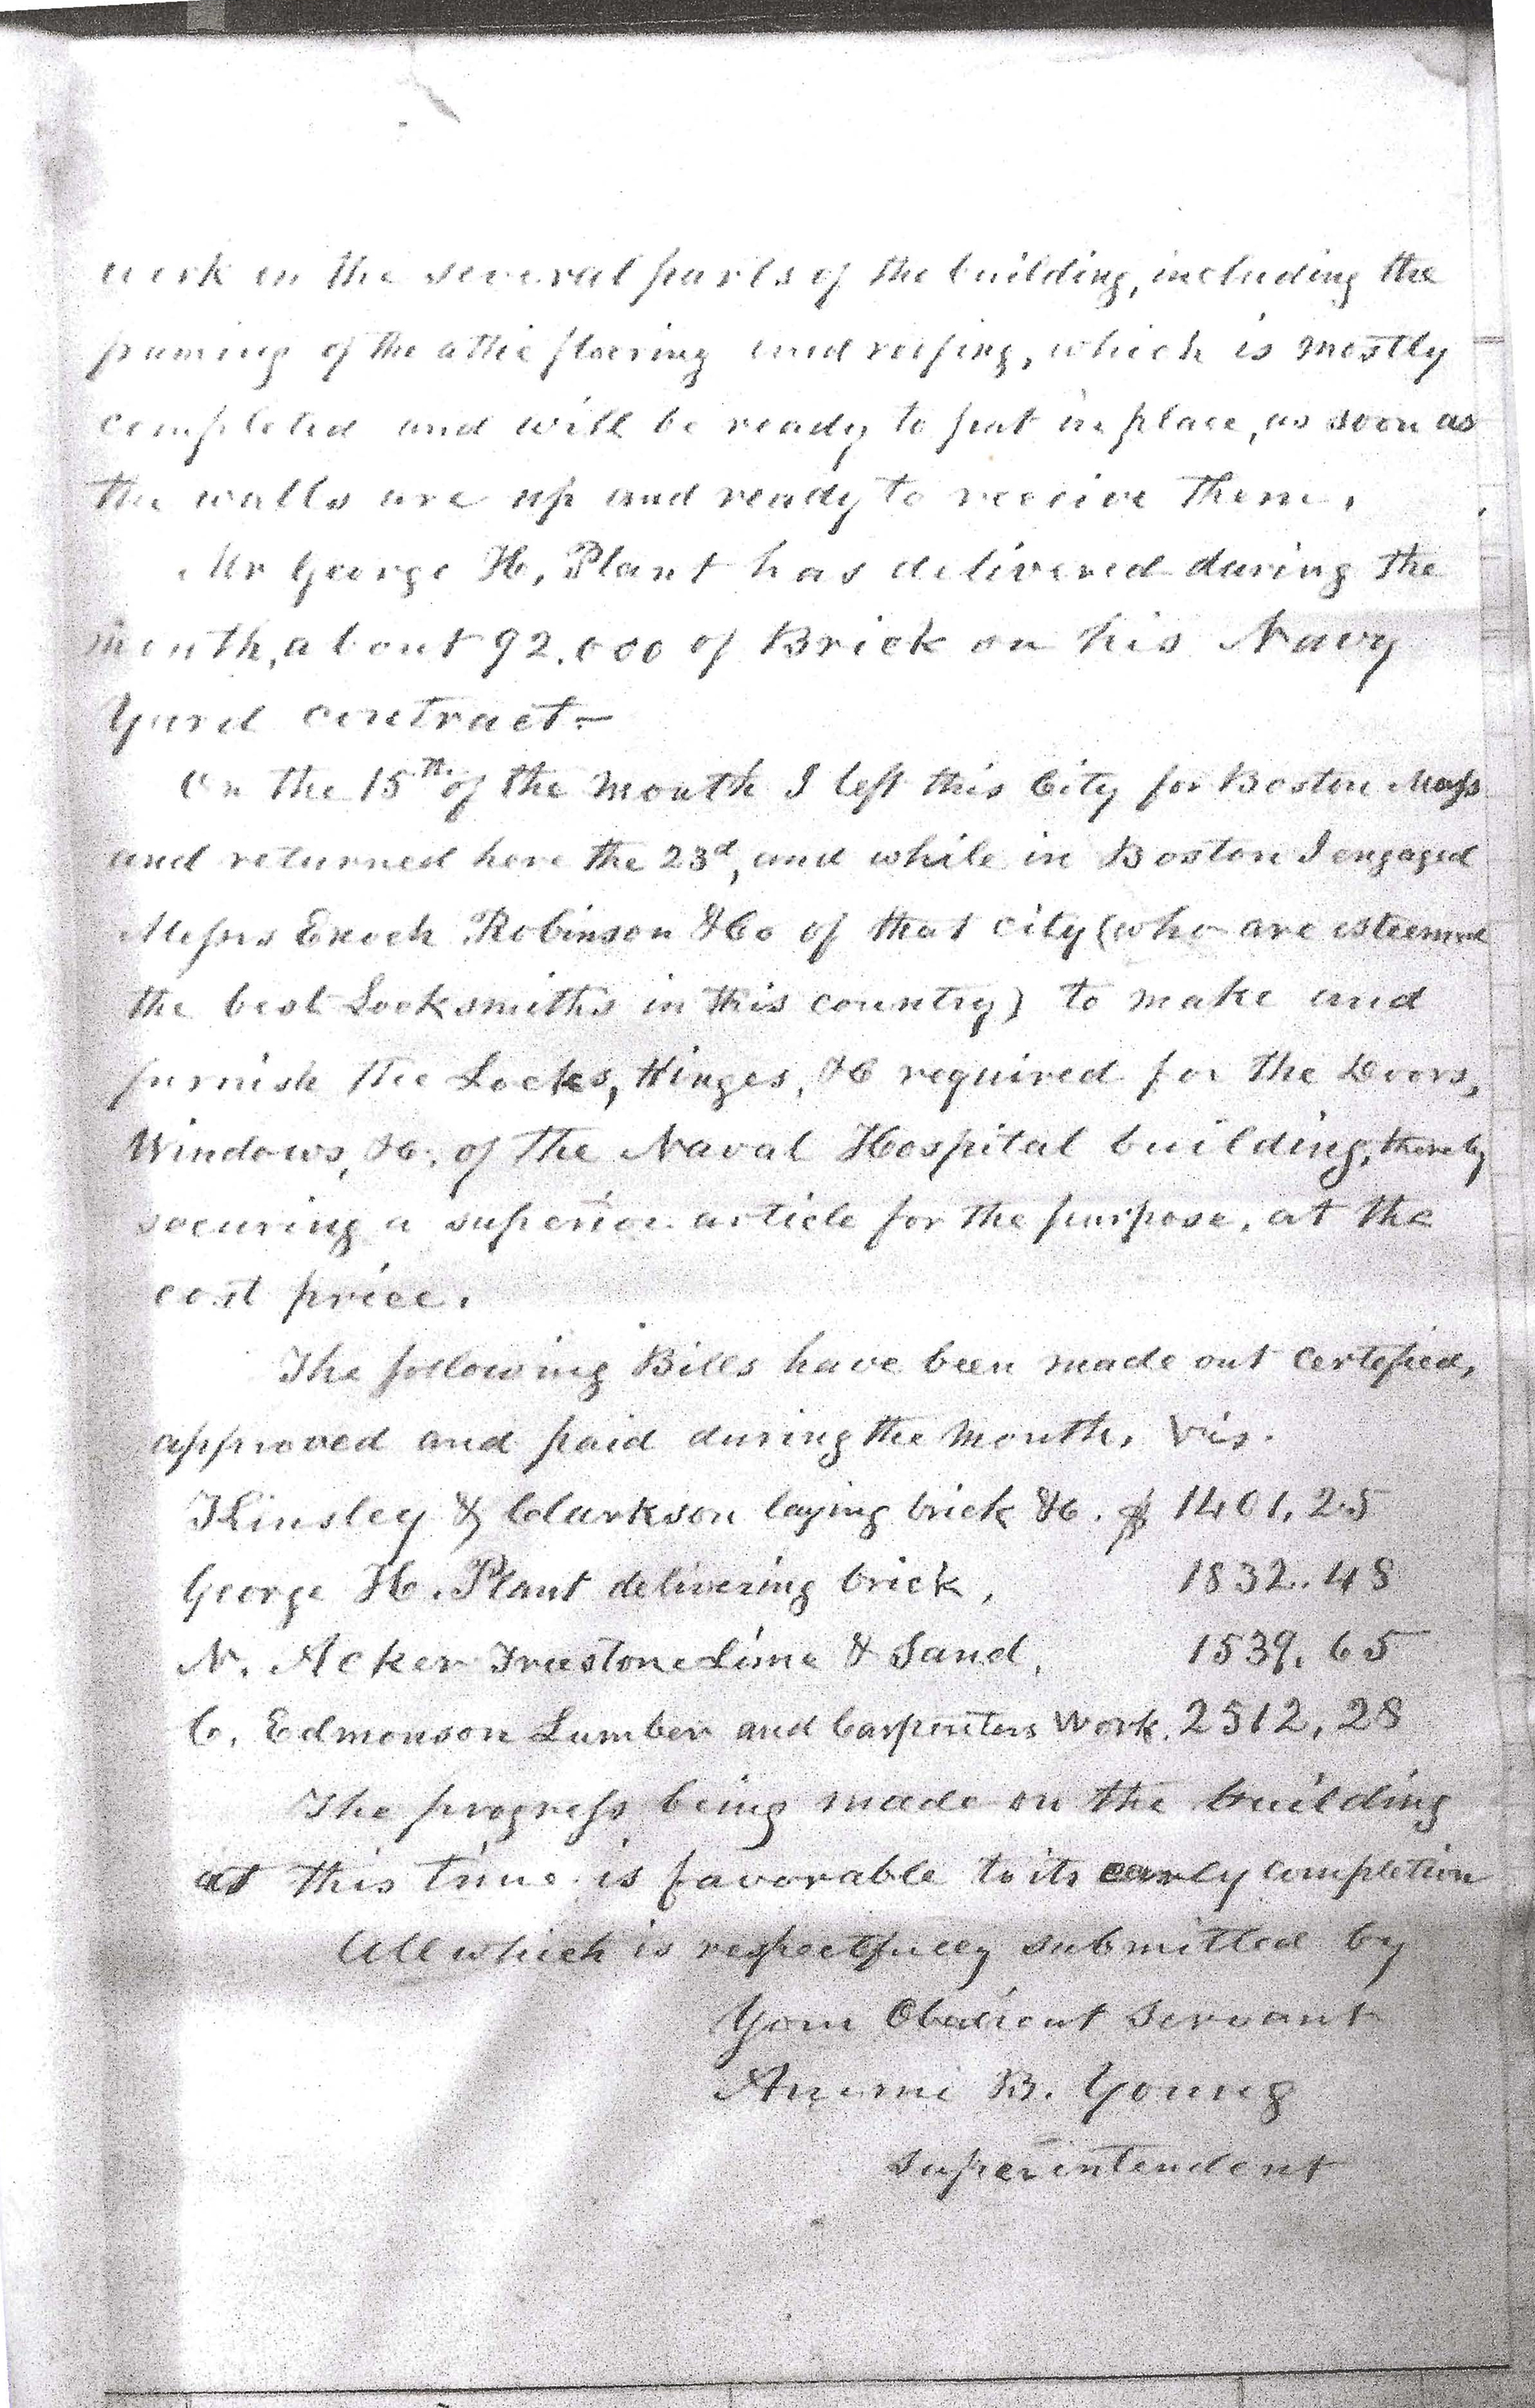 work on the several parts of the building, including the
framing of the attic flooring and roofing, which is mostly
completed and will be ready to put in place, as soon as
the walls are up and ready to receive them.
Mr George H. Plant has delivered during the
month, about 92.000 of Brick on his Navy
Yard contract—
On the 15th of the month I left this City for Boston Mass
and returned here the 23d, and while in Boston I engaged
Messrs Enoch Robinson & Co of that city (who are esteemed
the best Locksmiths in this country) to make and
furnish the Locks, Hinges, &c required for the Doors,
Windows, &c. of the Naval Hospital building, thereby
securing a superior article for the purpose, at the
cost price.
The following Bills have been made out certified,
approved and paid during the month, Vis.
Kinsley & Clarkson laying brick &c. $ 1401.25
George H. Plant delivering brick, 1832.48
N. Acker Freestone Lime & Sand, 1539.65
C. Edmonson Lumber and Carpenters Work. 2512.28
The progress being made on the building
at this time is favorable to its early completion
All which is respectfully submitted by
Your Obedient Servant
Ammi B. Young
Superintendent